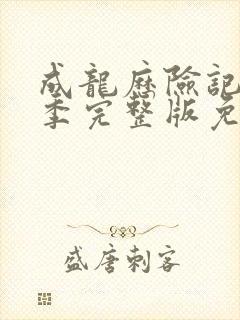 成龍歷險記
季完整版免
盛唐刺客